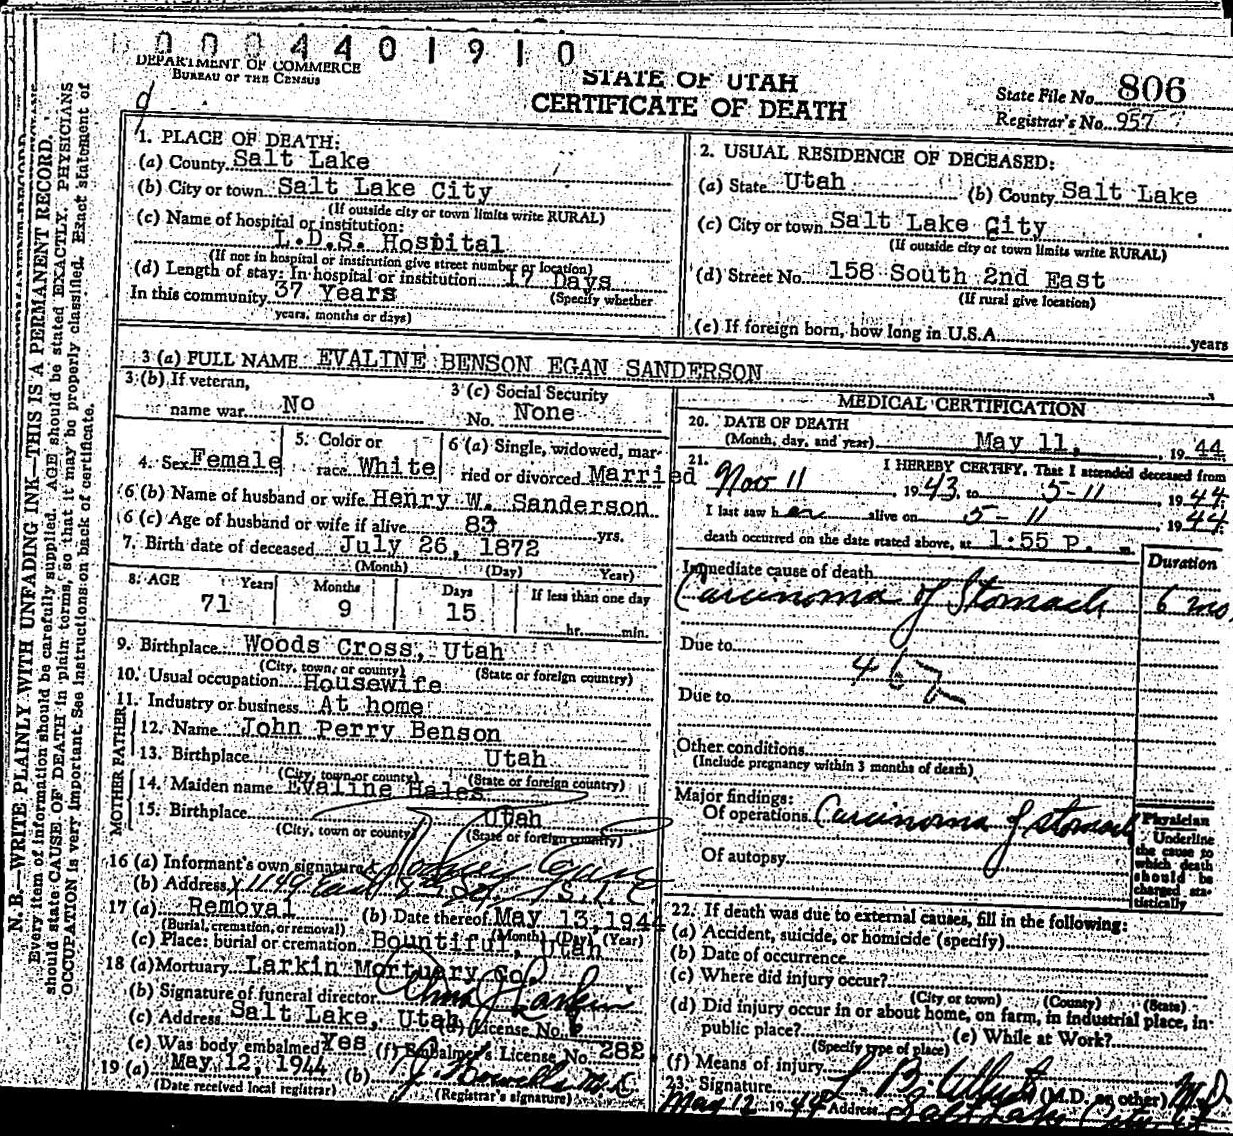 0 0 0 4 4 0 1 9 1 0
DEPARTMENT OF COMMERCE
BUREAU OF THE CENSUS
STATE OF UTAH
CERTIFICATE OF DEATH
State File No. 806
Registrar's No. 957
N. B.—WRITE PLAINLY WITH UNFADING INK—THIS IS A PERMANENT RECORD.
Every item of information should be carefully supplied. AGE should be stated EXACTLY. PHYSICIANS
should state CAUSE OF DEATH in plain terms, so that it may be properly classified. Exact statement of
OCCUPATION is very important. See instructions on back of certificate.
1. PLACE OF DEATH:
(a) County Salt Lake
(b) City or town Salt Lake City
(If outside city or town limits write RURAL)
(c) Name of hospital or institution:
L.D.S. Hospital
(If not in hospital or institution give street number or location)
(d) Length of stay: In hospital or institution 17 Days
In this community 37 Years (Specify whether
years, months or days)
2. USUAL RESIDENCE OF DECEASED:
(a) State Utah (b) County Salt Lake
(c) City or town Salt Lake City
(If outside city or town limits write RURAL)
(d) Street No. 158 South 2nd East
(If rural give location)
(e) If foreign born, how long in U.S.A. years
3 (a) FULL NAME EVALINE BENSON EGAN SANDERSON
3 (b) If veteran,
name war No
3 (c) Social Security
No. None
4. Sex Female
5. Color or
race White
6 (a) Single, widowed, mar-
ried or divorced Married
6 (b) Name of husband or wife Henry W. Sanderson
6 (c) Age of husband or wife if alive 83 yrs.
7. Birth date of deceased July 26, 1872
(Month) (Day) Year)
8. AGE Years Months Days If less than one day
71 9 15 hr. min.
9. Birthplace Woods Cross, Utah
(City, town, or county) (State or foreign country)
10. Usual occupation Housewife
11. Industry or business At home
FATHER
12. Name John Perry Benson
13. Birthplace Utah
(City, town or county) (State or foreign country)
MOTHER
14. Maiden name Evaline Hales
15. Birthplace Utah
(City, town or county) (State or foreign country)
16 (a) Informant's own signature x Rodney Egan
(b) Address x 1149 East S.L.C
17 (a) Removal (b) Date thereof May 13, 1944
(Burial, cremation, or removal) (Month) (Day) (Year)
(c) Place: burial or cremation Bountiful, Utah
18 (a) Mortuary Larkin Mortuary Co
(b) Signature of funeral director Larkin
(c) Address Salt Lake, Utah (d) License No.
(e) Was body embalmed Yes (f) Embalmer's License No. 282
19 (a) May 12, 1944 (b)
(Date received local registrar) (Registrar's signature)
MEDICAL CERTIFICATION
20. DATE OF DEATH
(Month, day, and year) May 11, 1944
21. I HEREBY CERTIFY, That I attended deceased from
Nov 11 1943, to 5-11 1944
I last saw her alive on 5-11 1944
death occurred on the date stated above, at 1:55 P. m.
Duration
Immediate cause of death
Carcinoma of Stomach 6 mo.
Due to
Due to
Other conditions
(Include pregnancy within 3 months of death)
Major findings:
Of operations Carcinoma of stomach
Of autopsy
Physician
Underline
the cause to
which death
should be
charged sta-
tistically
22. If death was due to external causes, fill in the following:
(a) Accident, suicide, or homicide (specify)
(b) Date of occurrence
(c) Where did injury occur?
(City or town) (County) (State)
(d) Did injury occur in or about home, on farm, in industrial place, in
public place? (e) While at Work?
(Specify type of place)
(f) Means of injury
23. Signature (M.D. or other) M.D.
May 12 1944 Address Salt Lake City, Ut